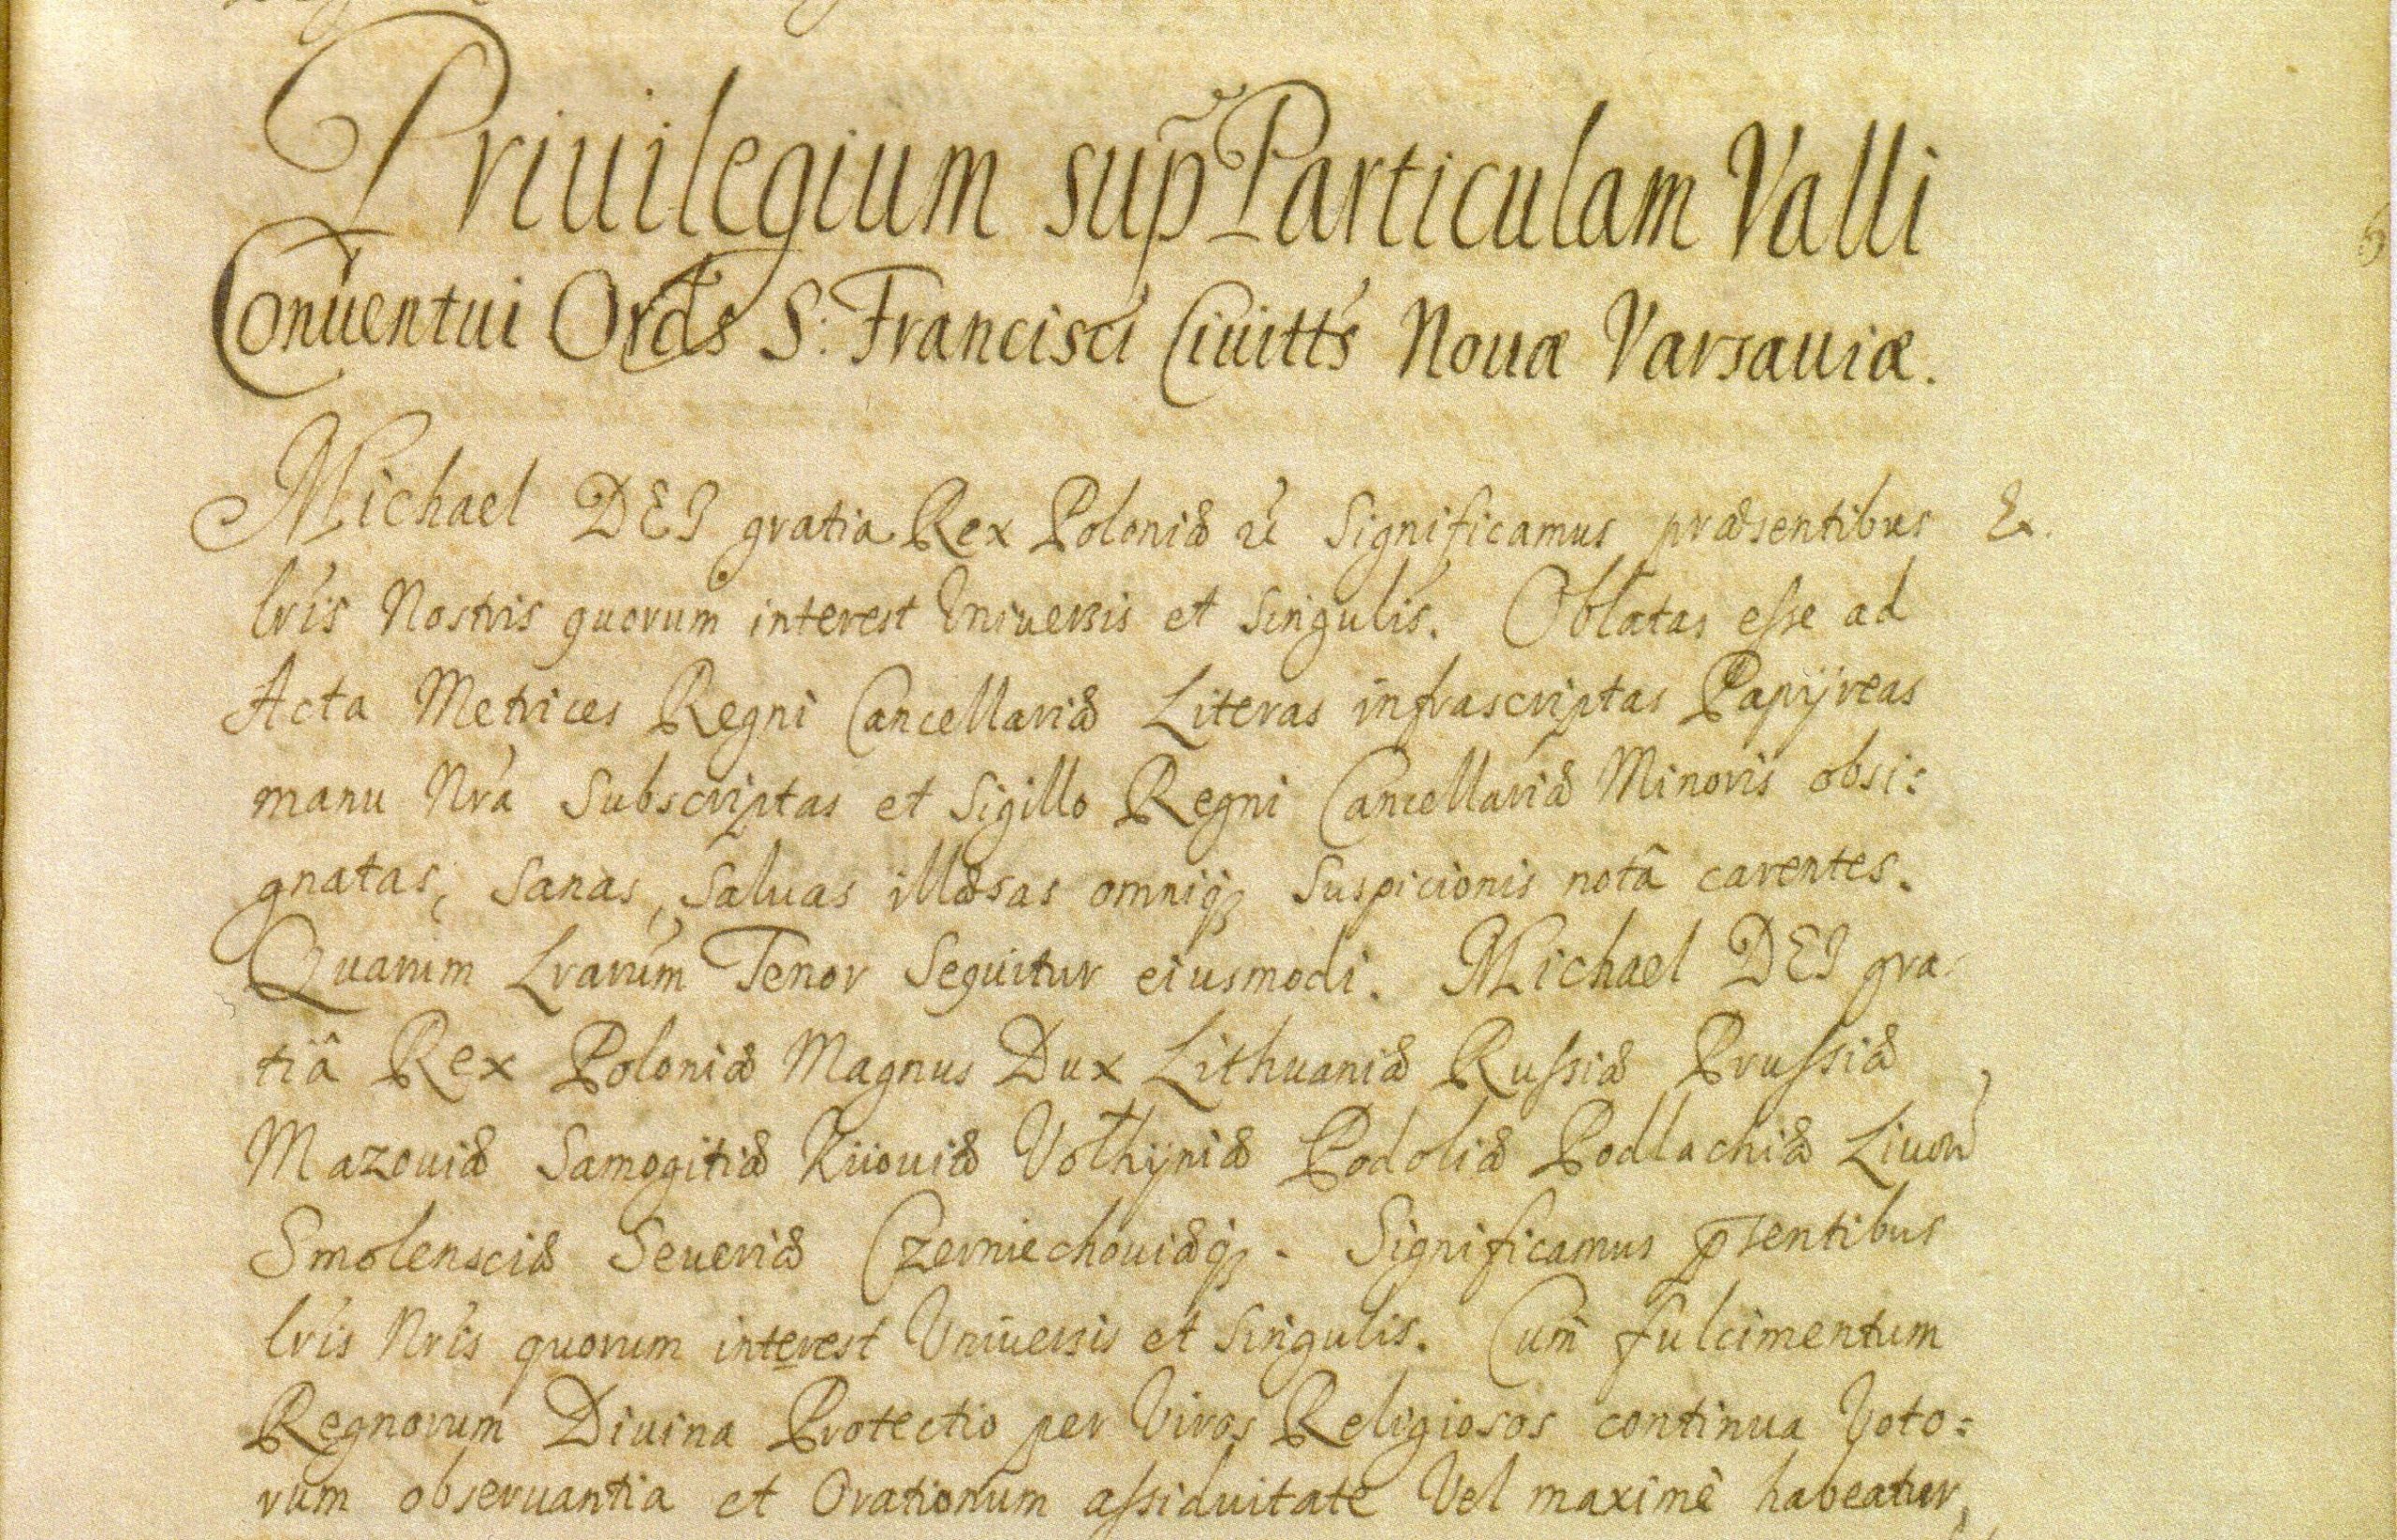 Priuilegium sup̃ Particulam Valli
Conuentui Ordĩs S: Francisci Ciuittĩs Nouæ Varsauiæ.
Michael DEI gratia Rex Poloniæ &c Significamus præsentibus Ex.
lr̃is Nostris quorum interest Vniuersis et Singulis. Oblatas esse ad
Acta Metrices Regni Cancellariæ Literas infrascriptas Papÿreas
manu Nr̃a Subscriptas et Sigillo Regni Cancellariæ Minoris obsi:
gnatas, Sanas, Saluas illæsas omniq₃ Suspicionis notâ carentes.
Quarum Lrarũm Tenor Sequitur eiusmodi. Michael DEI gra
tiâ Rex Poloniæ Magnus Dux Lithuaniæ Russiæ Prussiæ
Mazouiæ Samogitiæ Kiiouiæ Volhÿniæ Podoliæ Podlachiæ Liuon̄
Smolensciæ Seueriæ Czerniechouiæq₃. Significamus p̄sentibus
lr̃is Nr̃is quorum interest Vniuersis et Singulis. Cum fulcimentum
Regnorum Diuina Protectio per Viros Religiosos continua Voto:
rum obseruantia et Orationum assiduitate Vel maximè habeatur,